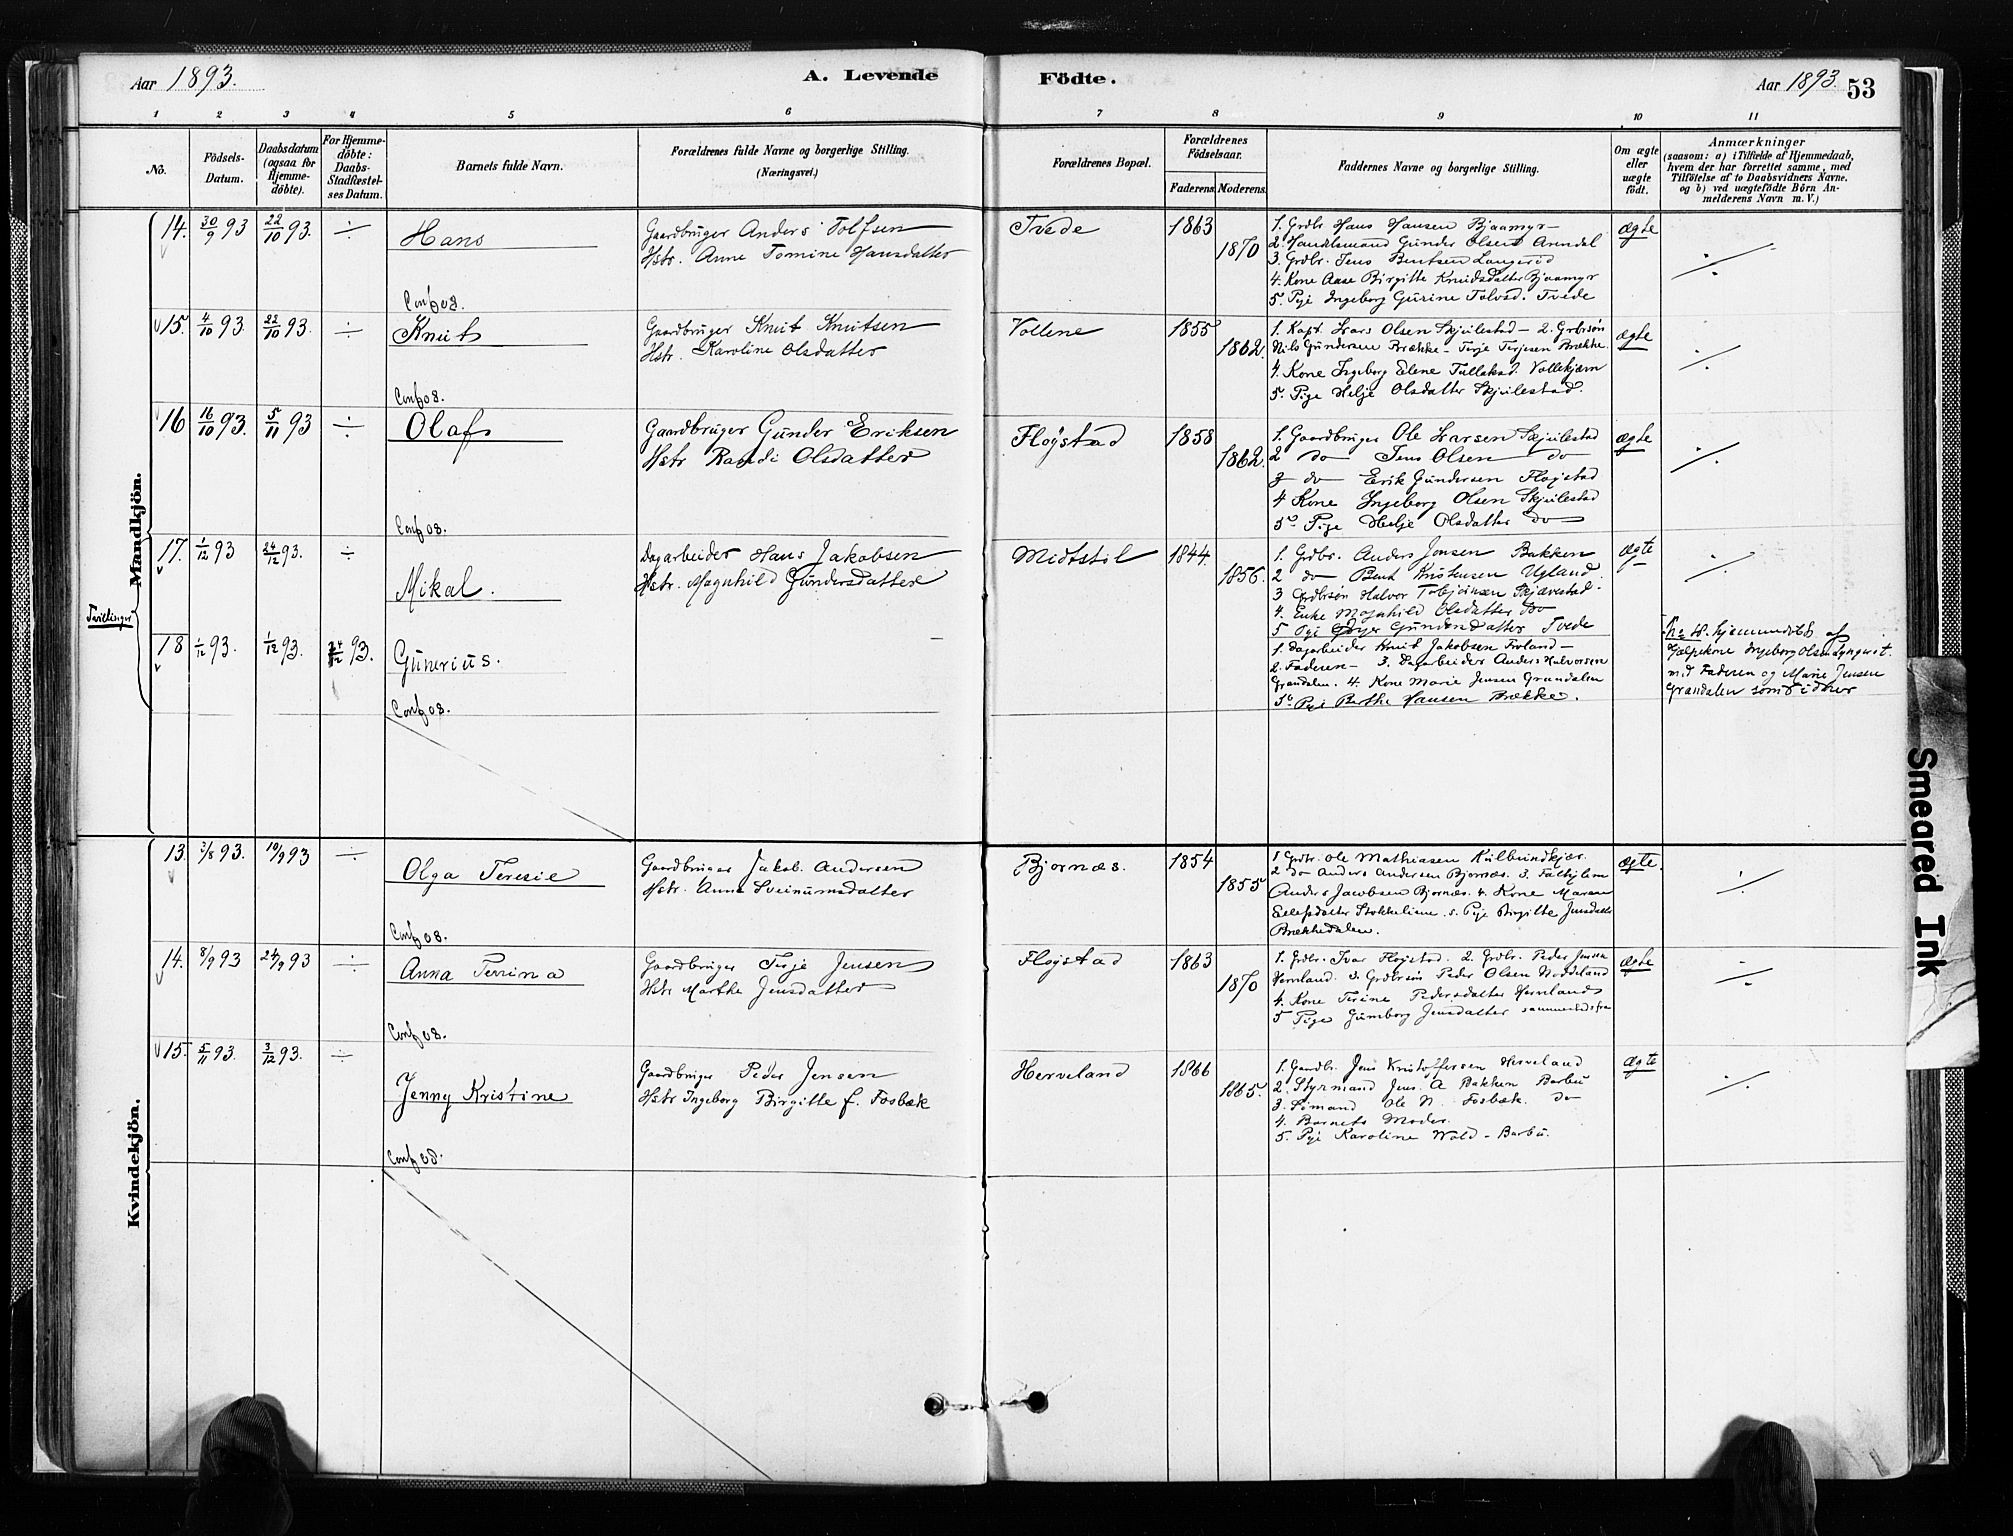 Aar 1893.
A. Levende Födte.
Aar 1893. 53
1 2 3 4 5 6 7 8 9 10 11
No.
Födsels-Datum.
Daabsdatum (ogsaa for Hjemme-döbte).
For Hjemme-döbte: Daabs-Stadfæstel-ses Datum.
Barnets fulde Navn.
Forældrenes fulde Navne og borgerlige Stilling.
(Næringsvei.)
Forældrenes Bopæl.
Forældrenes Födselsaar.
Faderens. Moderens.
Faddernes Navne og borgerlige Stilling.
Om ægte eller uægte födt.
Anmærkninger
(saasom: a) i Tilfælde af Hjemmedaab,
hvem der har forrettet samme, med
Tilföielse af to Daabsvidners Navne.
og b) ved uægtefödte Börn An-
melderens Navn m. V.)
Mandkjön.
14. 30/9 93 22/10 93. ÷ Hans
Gaardbruger Anders Tolfsen
Hstr. Anne Tomine Hansdatter
Conf 08.
Tvede 1863 1870
1. Grdbr Hans Hansen Bjaamyr
2. Handelsmand Gunder Olsen Arendal
3. Grdbr. Jens Bentsen Langerød
4. Kone Aase Birgitte Knudsdatter Bjaamyr
5. Pige Ingeborg Gurine Tolvsd. Tvede
ægte ÷
15. 4/10 93. 22/10 93. ÷ Knut
Gaardbruger Knut Knutsen
Hstr. Karoline Olsdatter
Conf 08.
Vollene 1855 1862.
1. Kapt. Lars Olsen Skjulestad – 2. Grbrsøn
Nils Gundersen Brække – Terje Terjesen Brække.
4. Kone Ingeborg Elene Tellaksd. Vollekjærn
5. Pige Helje Olsdatter Skjulestad.
ægte ÷
16 16/10 93. 5/11 93 ÷ Olaf
Gaardbruger Gunder Eriksen
Hstr Randi Olsdatter
Conf 08.
Fløystad 1858 1862.
1. Gaardbruger Ole Larsen Skjulestad
2 do Jens Olsen do
3 do Erik Gundersen Fløjstad
4 Kone Ingeborg Olsen Skjulestad
5. Pige Helje Olsdatter do
ægte ÷
Tvillinger
17. 1/12 93 24/12 93. ÷ Mikal.
Dagarbeider Hans Jakobsen
Hstr. Magnhild Gundersdatter
Midtstøl 1844. 1856.
1. Grdbr. Anders Jonsen Bakken
2 do Bent Kristensen Ugland.
3 Grdbrsøn Halvor Tobjørnsen Skjævestad.
4. Enke Magnhild Olsdatter do
5 Pige Gundersdatter Tvede
ægte ÷
18 1/12 93. 1/12 93. 24/12 93. Gunerius.
Conf 08.
1. Dagarbeider Knut Jakobsen Froland –
2. Faderen – 3. Dagarbeider Anders Halvorsen
Grandalen. 4. Kone Marie Jensen Grandalen
5. Pige Berthe Hansen Brække.
No 18. hjemmedøbt af
Hjælpekone Ingeborg Olsen Lyngrot
med Faderen og Marie Jensen
Grandalen som Vidner
Kvindekjön.
13. 3/8 93. 10/9 93 ÷ Olga Teresie
Gaardbruger Jakob Andersen
Hstr. Anna Sveinumsdatter
Conf 08.
Bjornæs. 1854 1855
1 Grdbr. Ole Mathiasen Kulbrindkjær.
2 do Anders Andersen Bjornæs. 3.
Anders Jacobsen Bjornæs. 4. Kone Maren
Eilefsdatter Stokkeliene. 5. Pige Birgitte Jensdatter
Brækkedalen.
ægte. ÷
14. 8/9 93 24/9 93 ÷ Anna Terrina
Gaardbruger Terje Jensen
Hstr Marthe Jensdatter
Conf 08.
Fløjstad 1863 1870
1. Grdbr. Ivar Fløjstad. 2. Grdbr. Peder Jensen
Hernland. 3. Grdbrsøn Peder Olsen
4. Kone Terine Pedersdatter Hernland
5 Pige Gumborg Jensdatter sammestedsfra
ægte ÷
15. 5/11 93. 3/12 93. ÷ Jenny Kristine
Gaardbruger Peder Jensen
Hstr Ingeborg Birgitte f. Fosbæk
Conf 08.
Herveland 1866 1865.
1. Gaardbr. Jens Kristoffersen Herveland
2. Styrmand Jens. A Bakken Barbu
3. Sømand Ole N. Fosbæk. do
4. Barnets Moder.
5. Pige Karoline Wold – Barbu.
ægte ÷
Smeared Ink